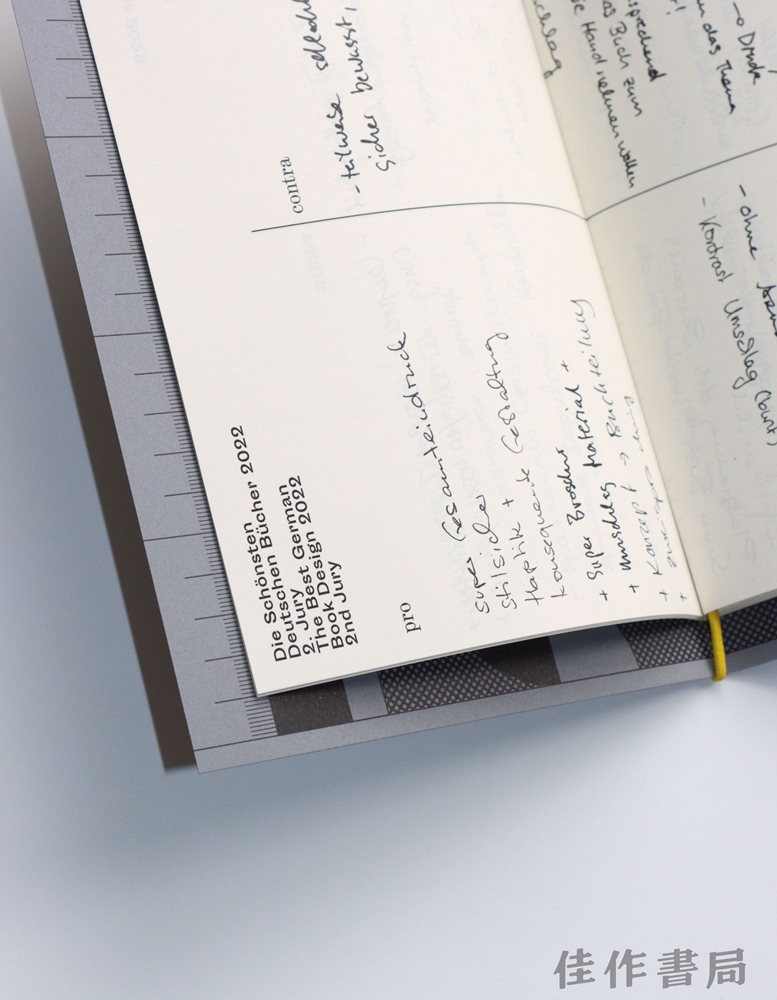 Die Schönsten
Deutschen Bücher 2022
2. Jury
The Best German
Book Design 2022
2nd Jury
pro
super Gesamteindruck
stilsicher
Haptik + Gestaltung
konsequente
+ super Broschur
+ Umschlag Material +
+ Konzept → Buchteilung
+
contra
- teilweise
sicher bewusst,
schlag
sprechend
das Buch zum
die Hand nehmen wollen
→ Druck
an das Thema
- ohne
- Kontrast Umschlag (bunt)
佳作書局